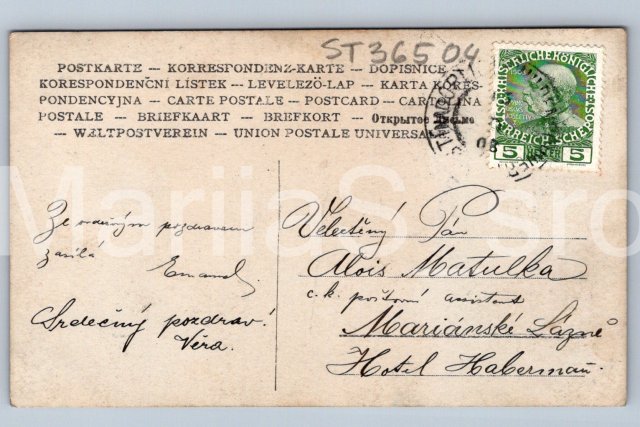 ST 365 04
POSTKARTE — KORRESPONDENZ-KARTE — DOPISNICE
KORESPONDENČNÍ LÍSTEK — LEVELEZÖ-LAP — KARTA KORES-
PONDENCYJNA — CARTE POSTALE — POSTCARD — CARTOLINA
POSTALE — BRIEFKAART — BREFKORT — Открытое письмо
— WELTPOSTVEREIN — UNION POSTALE UNIVERSA
08
5 5
Velectěný Pán
Alois Matulka
c. k. poštovní assistent
Mariánské Lázně
Hotel Haberman
Ze srdečným pozdravem
zasílá
Emanel.
Srdečný pozdrav!
Věra.